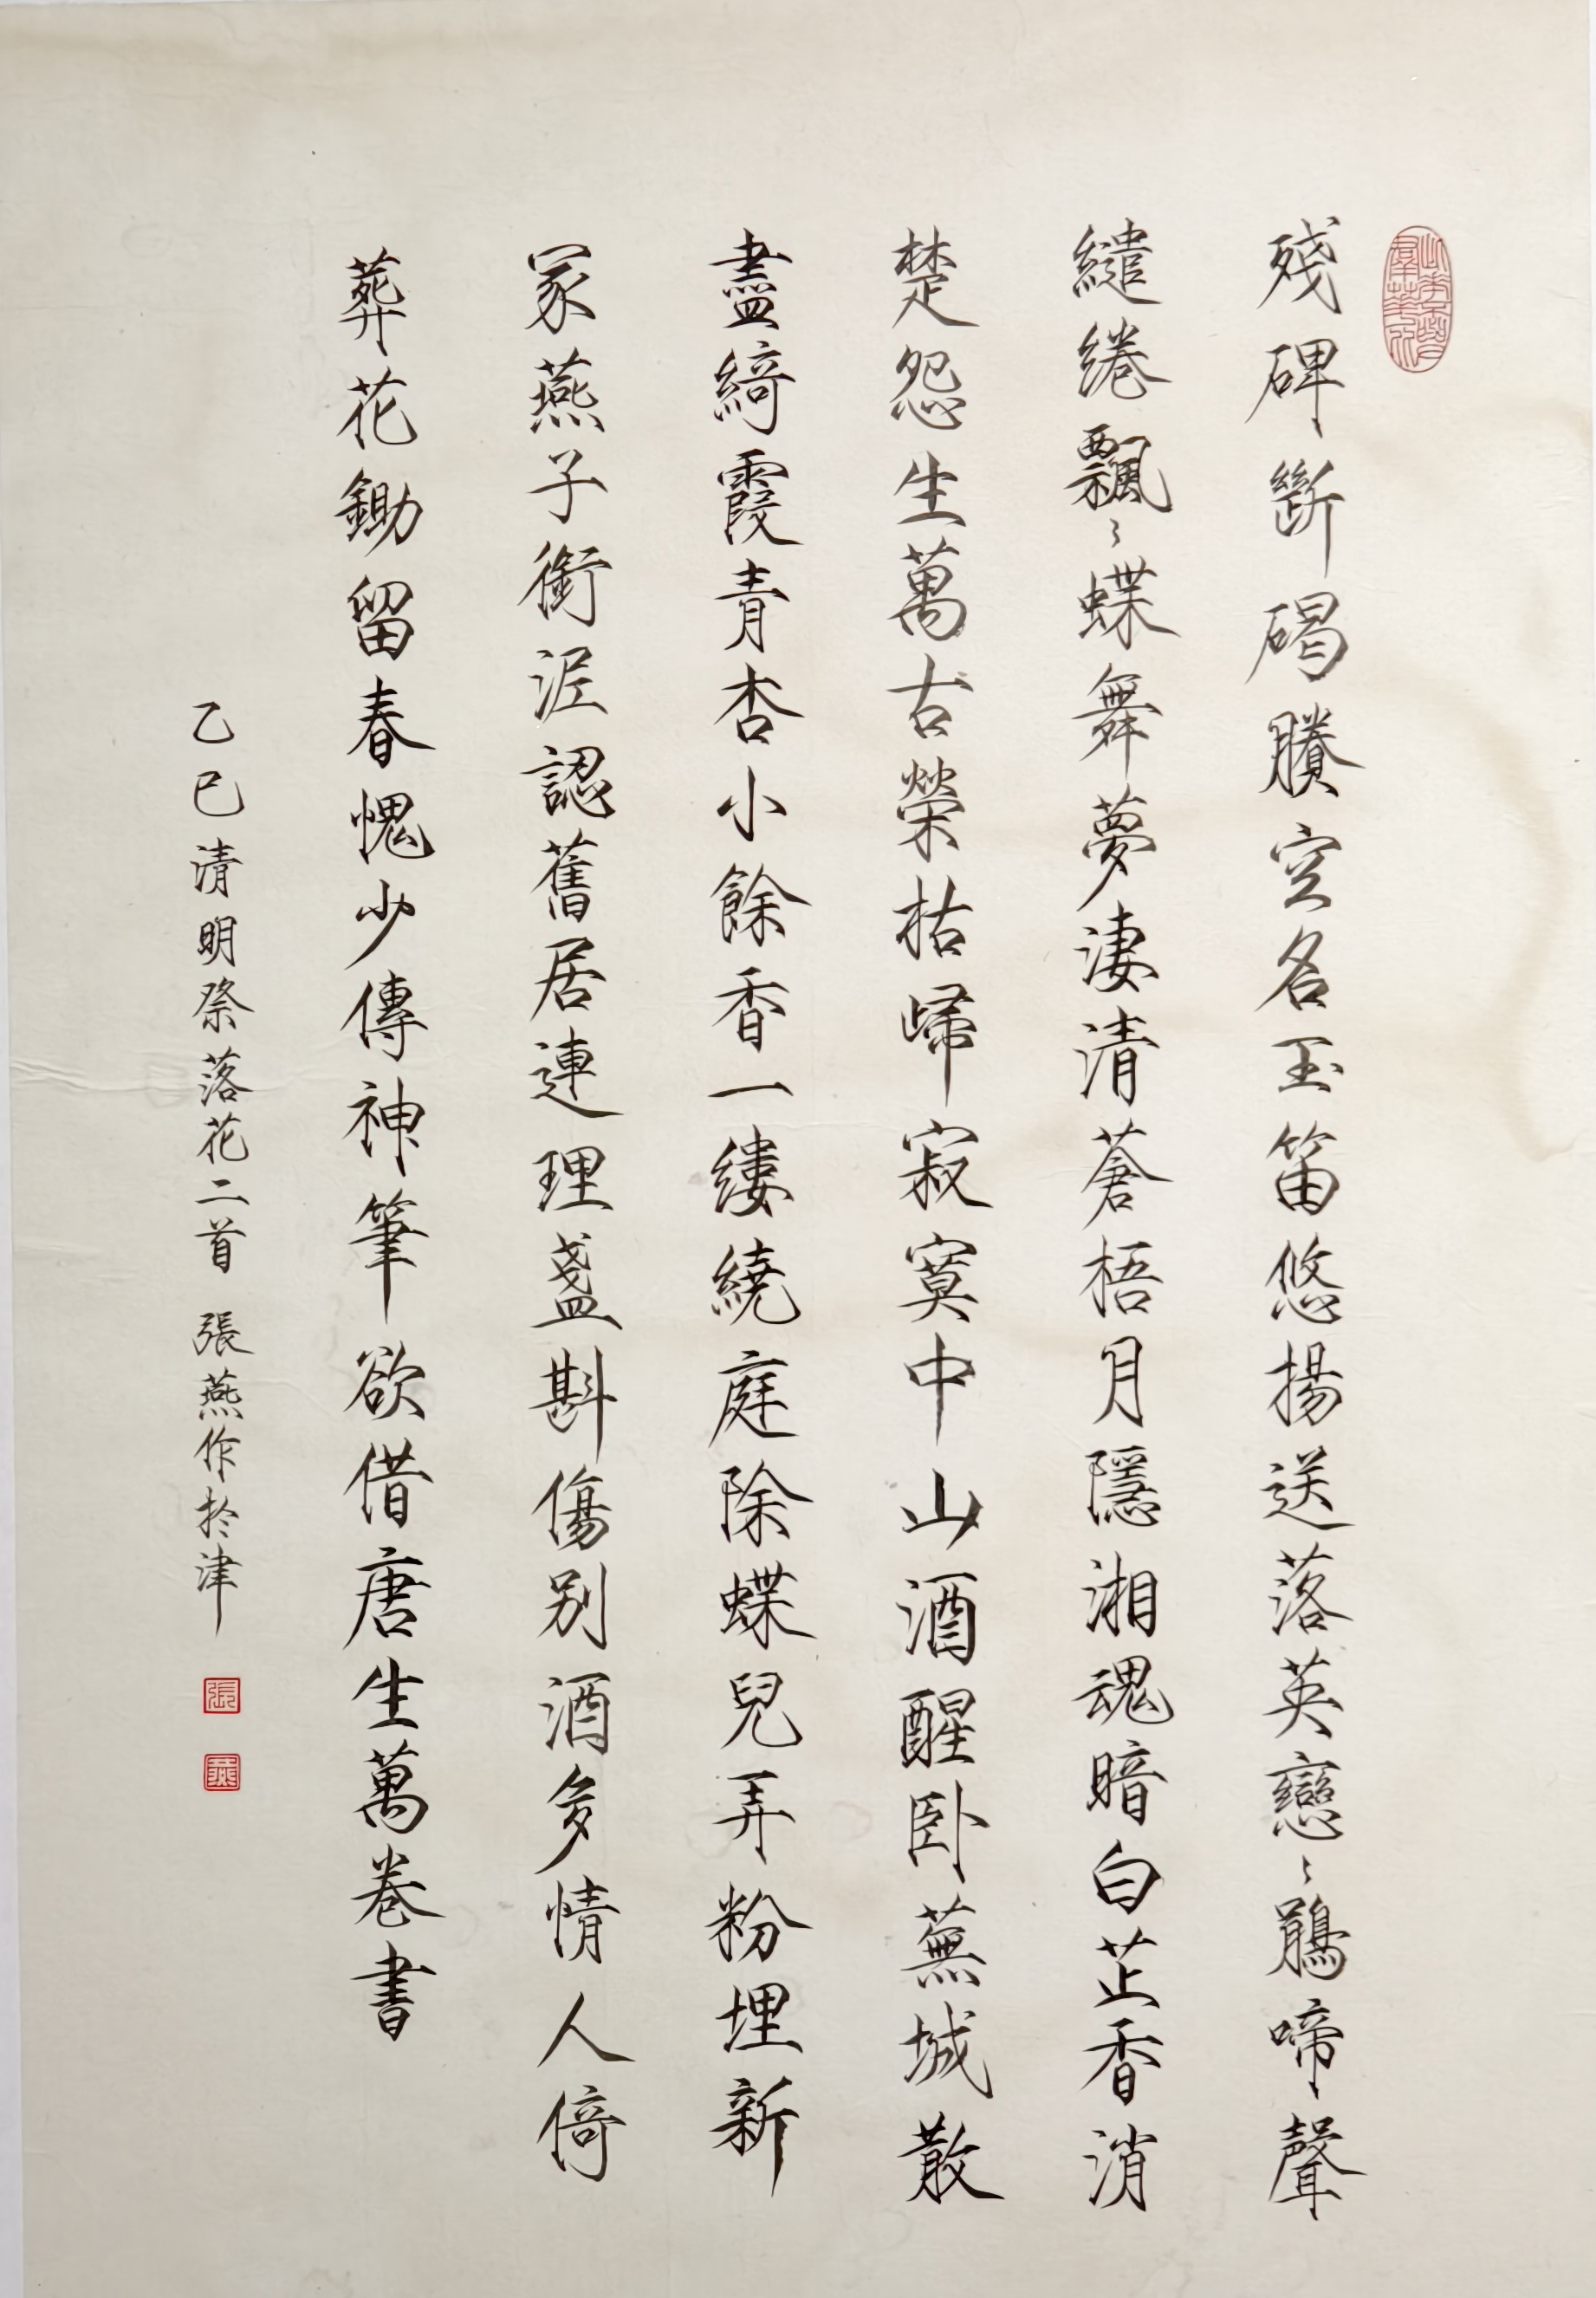 殘碑斷碣賸空名玉笛悠揚送落英戀〻鵑啼聲
繾綣飄〻蝶舞夢淒清蒼梧月隱湘魂暗白芷香消
楚怨生萬古榮枯歸寂寞中山酒醒卧蕪城散
盡綺霞青杏小餘香一縷繞庭除蝶兒弄粉埋新
冢燕子銜泥認舊居連理盞斟傷别酒多情人倚
葬花鋤留春愧少傳神筆欲借唐生萬卷書
乙巳清明祭落花二首 張燕作於津
張
燕